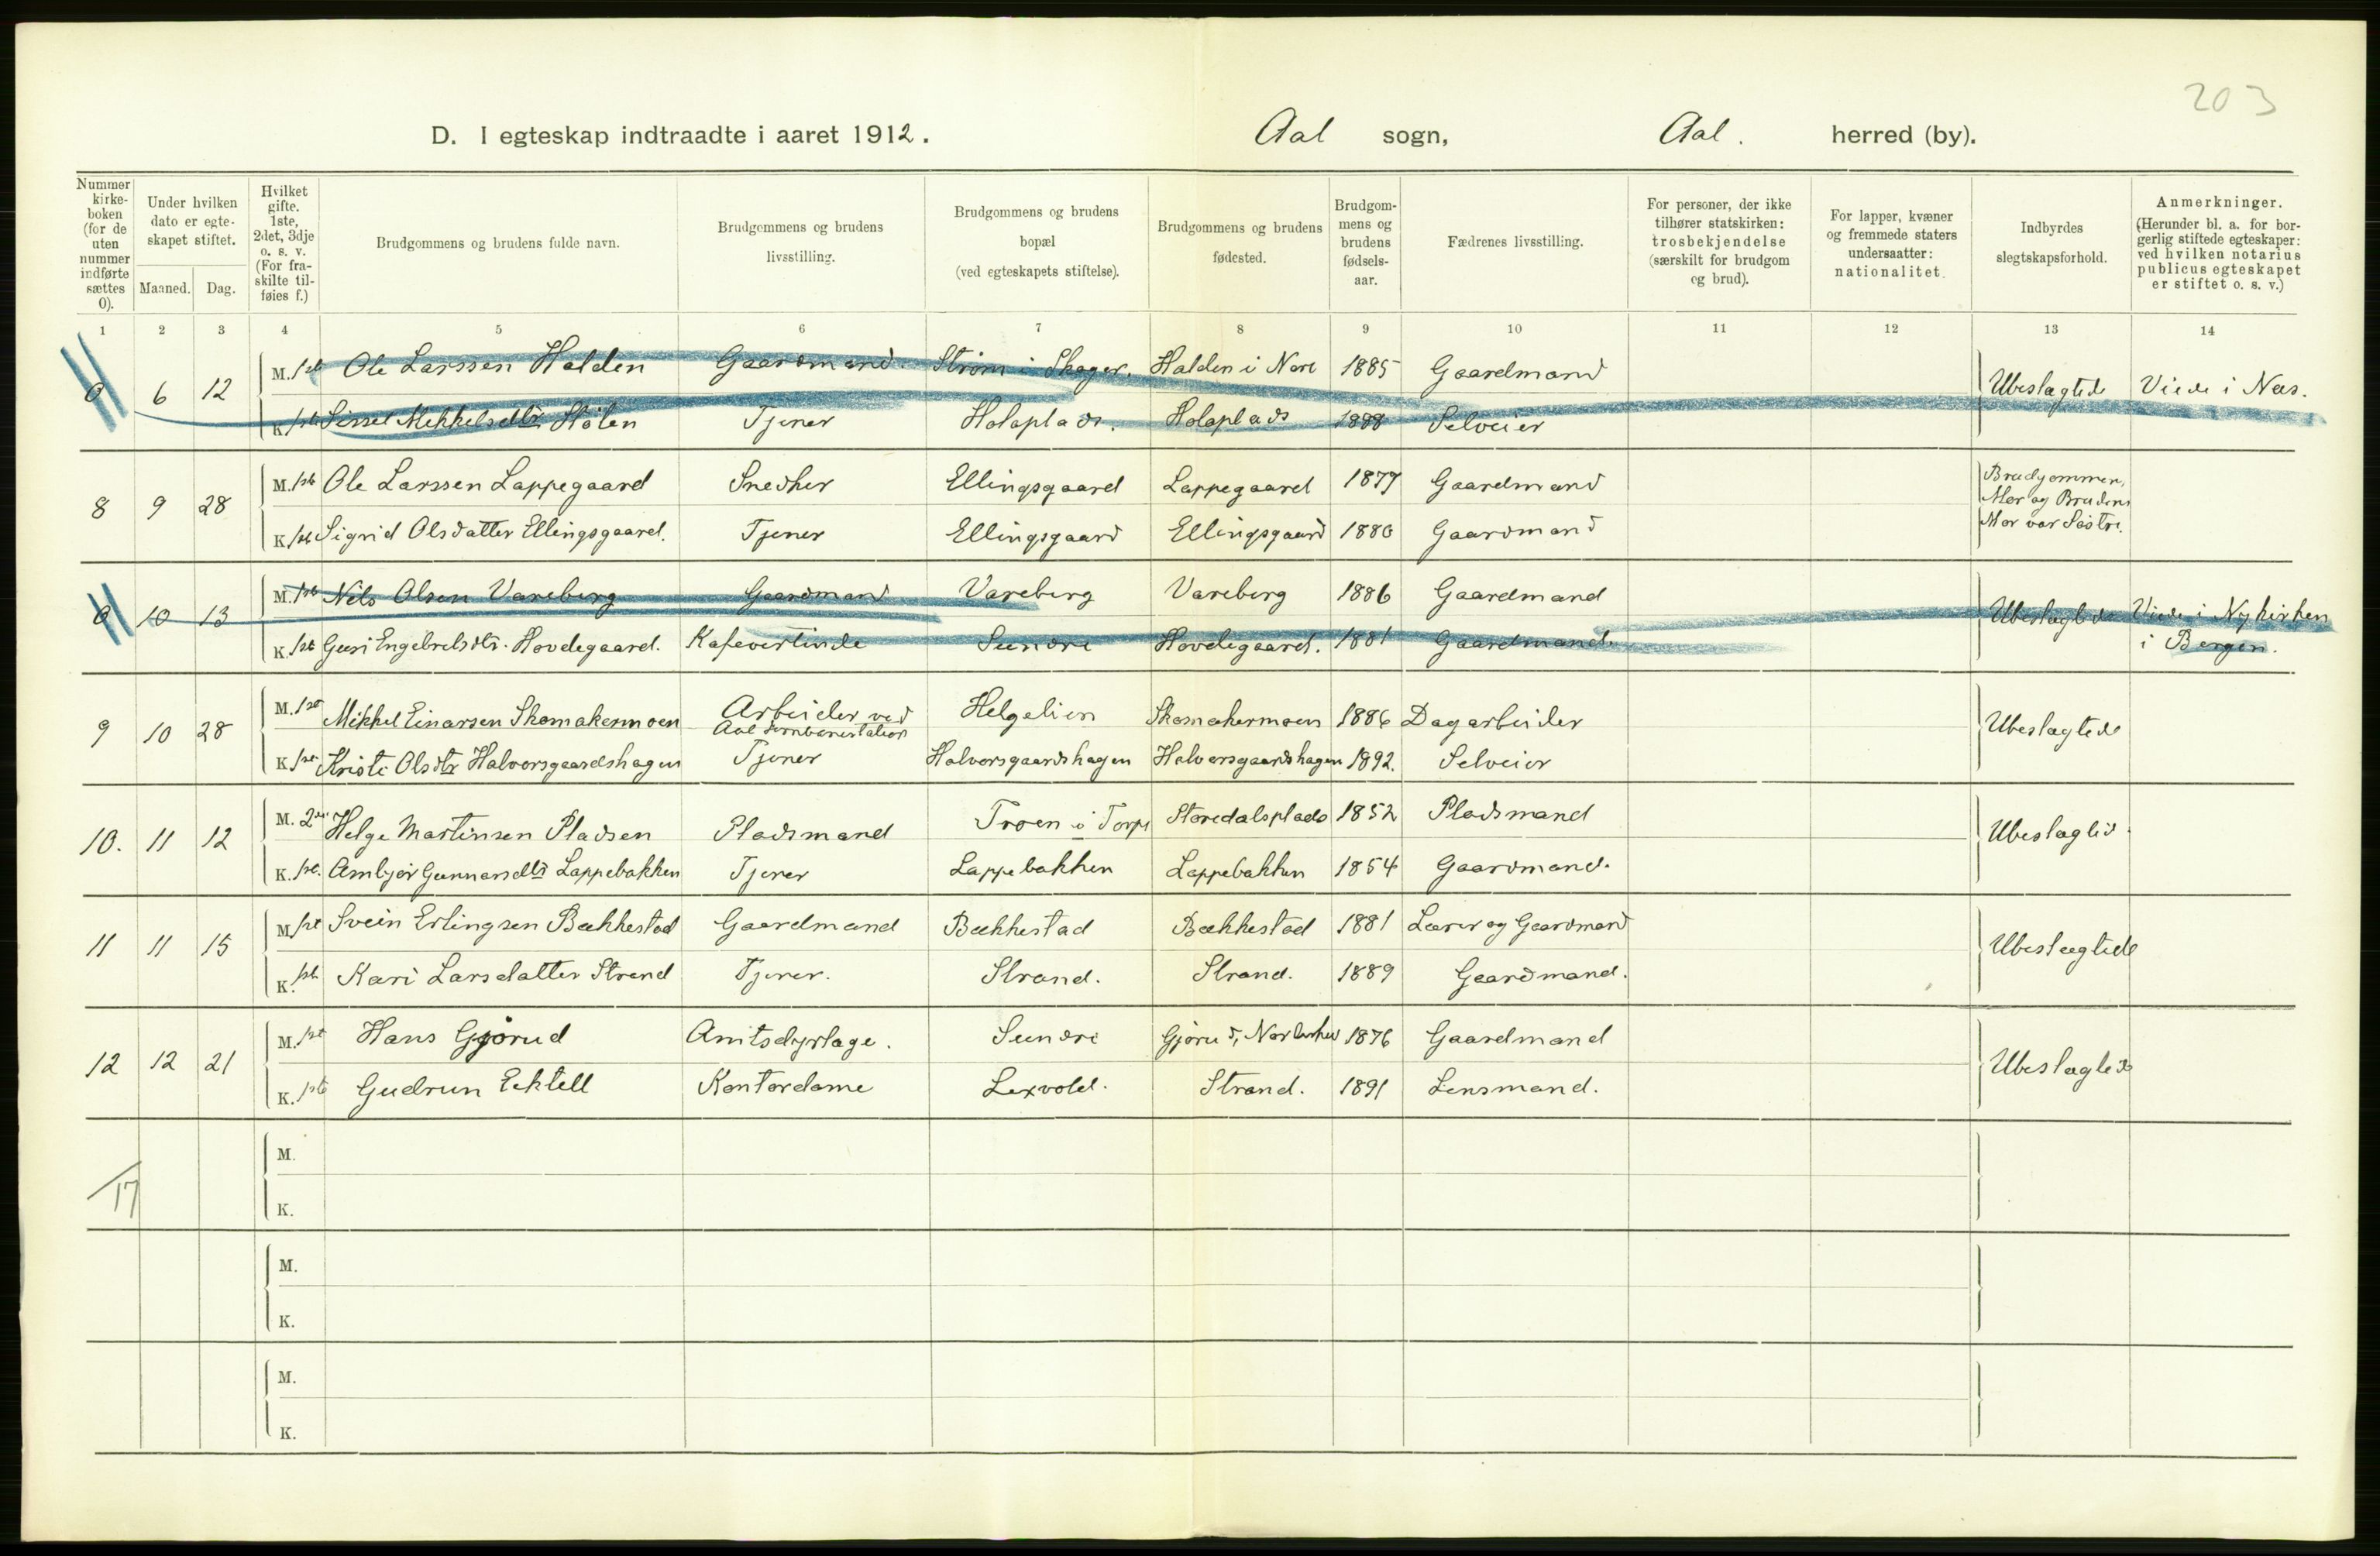 203
D. I egteskap indtraadte i aaret 1912. Aal sogn, Aal. herred (by).
Nummer kirke-boken (for de uten nummer indførte sættes 0).
Under hvilken dato er egte-skapet stiftet.
Maaned. Dag.
Hvilket gifte. 1ste, 2det, 3dje o. s. v. (For fra-skilte til-føies f.)
Brudgommens og brudens fulde navn.
Brudgommens og brudens livsstilling.
Brudgommens og brudens bopæl (ved egteskapets stiftelse).
Brudgommens og brudens fødested.
Brudgom-mens og brudens fødsels-aar.
Fædrenes livsstilling.
For personer, der ikke tilhører statskirken: trosbekjendelse (særskilt for brudgom og brud).
For lapper, kvæner og fremmede staters undersaatter: nationalitet.
Indbyrdes slegtskapsforhold.
Anmerkninger. (Herunder bl. a. for bor-gerlig stiftede egteskaper: ved hvilken notarius publicus egteskapet er stiftet o. s. v.)
1 2 3 4 5 6 7 8 9 10 11 12 13 14
0 6 12 M. 1ste Ole Larssen Halden Gaardmand. Strøm i Skager. Halden i Nore 1885 Gaardmand Ubeslægtede Viede i Næs.
K. 1ste Sissel Mekkelsdtr. Stølen Tjener Holaplads. Holaplads 1888 Selveier
8 9 28 M. 1ste Ole Larssen Lappegaard Snedker Ellingsgaard Lappegaard 1877 Gaardmand Brudgommens Mor og Brudens Mor var Søstre.
K. 1ste Sigrid Olsdatter Ellingsgaard. Tjener Ellingsgaard Ellingsgaard 1880 Gaardmand
0 10 13 M. 1ste Nils Olsen Vareberg Gaardmand Vareberg Vareberg 1886 Gaardmand Ubeslægtede Viede i Nykirken i Bergen.
K. 1ste Guri Engebretsdtr. Hovdegaard. Kafevertinde Sundre Hovdegaard. 1881 Gaardmand.
9 10 28 M. 1ste Mikkel Einarsen Skomakermoen Arbeider ved Aal Jernbanestation Helgelien Skomakermoen 1886 Dagarbeider Ubeslægtede
K. 1ste Kristi Olsdtr Halvorsgaardshagen Tjener Halvorsgaardshagen Halvorsgaardshagen 1892. Selveier
10. 11 12 M. 2det Helge Martinsen Pladsen Pladsmand Troen i Torpe Storedalsplads 1852 Pladsmand Ubeslægted
K. 1ste. Ambjør Gunnarsdtr Lappebakken Tjener Lappebakken Lappebakken 1854 Gaardmand.
11 11 15 M. 1ste Svein Erlingsen Bækkestad Gaardmand Bækkestad Bækkestad 1881 Lærer og Gaardmand Ubeslægtede
K. 1ste Kari Larsdatter Strand Tjener. Strand. Strand. 1889 Gaardmand.
12 12 21 M. 1ste Hans Gjørud Amtsdyrlæge. Sundre Gjørud, Norderhov 1876 Gaardmand Ubeslægtede
K. 1ste Gudrun Ecktell Kontordame Lexvold. Strand. 1891 Lensmand.
M.
17
K.
M.
K.
M.
K.